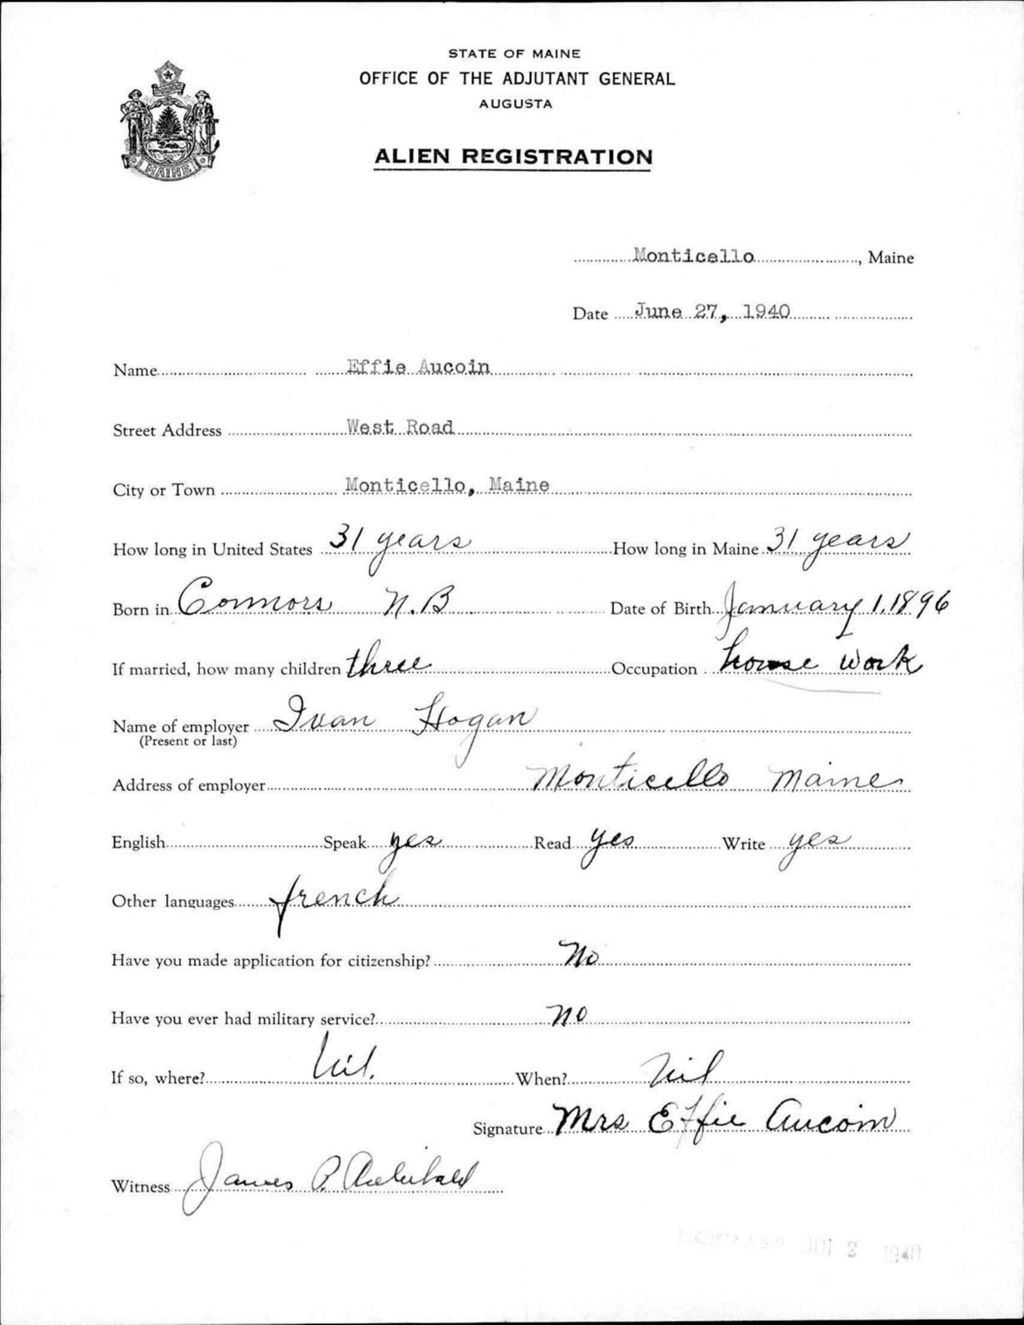 STATE OF MAINE
OFFICE OF THE ADJUTANT GENERAL
AUGUSTA
ALIEN REGISTRATION
MAINE
Monticello, Maine
Date June 27, 1940
Name Effie Aucoin
Street Address West Road
City or Town Monticello, Maine
How long in United States 31 years How long in Maine 31 years
Born in Connors N.B Date of Birth January 1, 1896
If married, how many children three Occupation house work
Name of employer Ivan Hogan
(Present or last)
Address of employer Monticello Maine
English Speak yes Read yes Write yes
Other languages french
Have you made application for citizenship? No
Have you ever had military service? no
If so, where? Nil. When? Nil
Signature Mrs Effie Aucoin
Witness James P. Archibald
2 1940